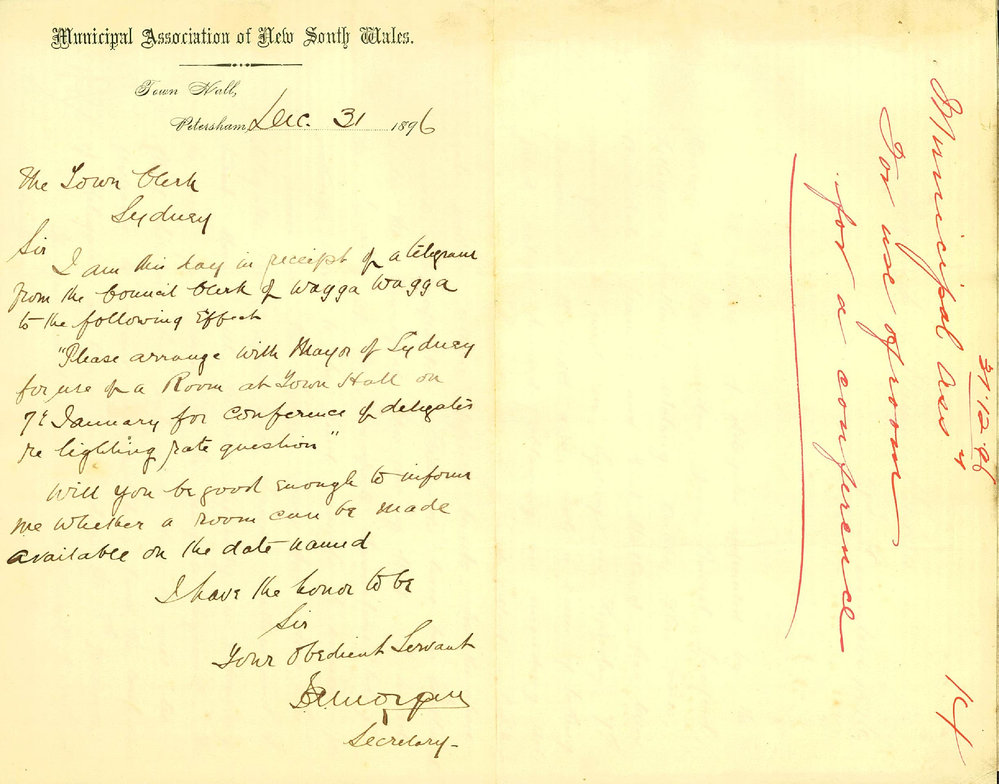 Municipal Association of New South Wales.
Town Hall,
Petersham, Dec. 31 1896
The Town Clerk
Sydney
Sir
I am this day in receipt of a telegram
from the Council Clerk of Wagga Wagga
to the following Effect
"Please arrange with Mayor of Sydney
for use of a Room at Town Hall on
7th January for conference of delegates
re lighting rate question"
Will you be good enough to inform
me whether a room can be made
available on the date named
I have the honor to be
Sir
Your Obedient Servant
Morgan
Secretary
31.12.96
Municipal Assn
For use of room
for a conference